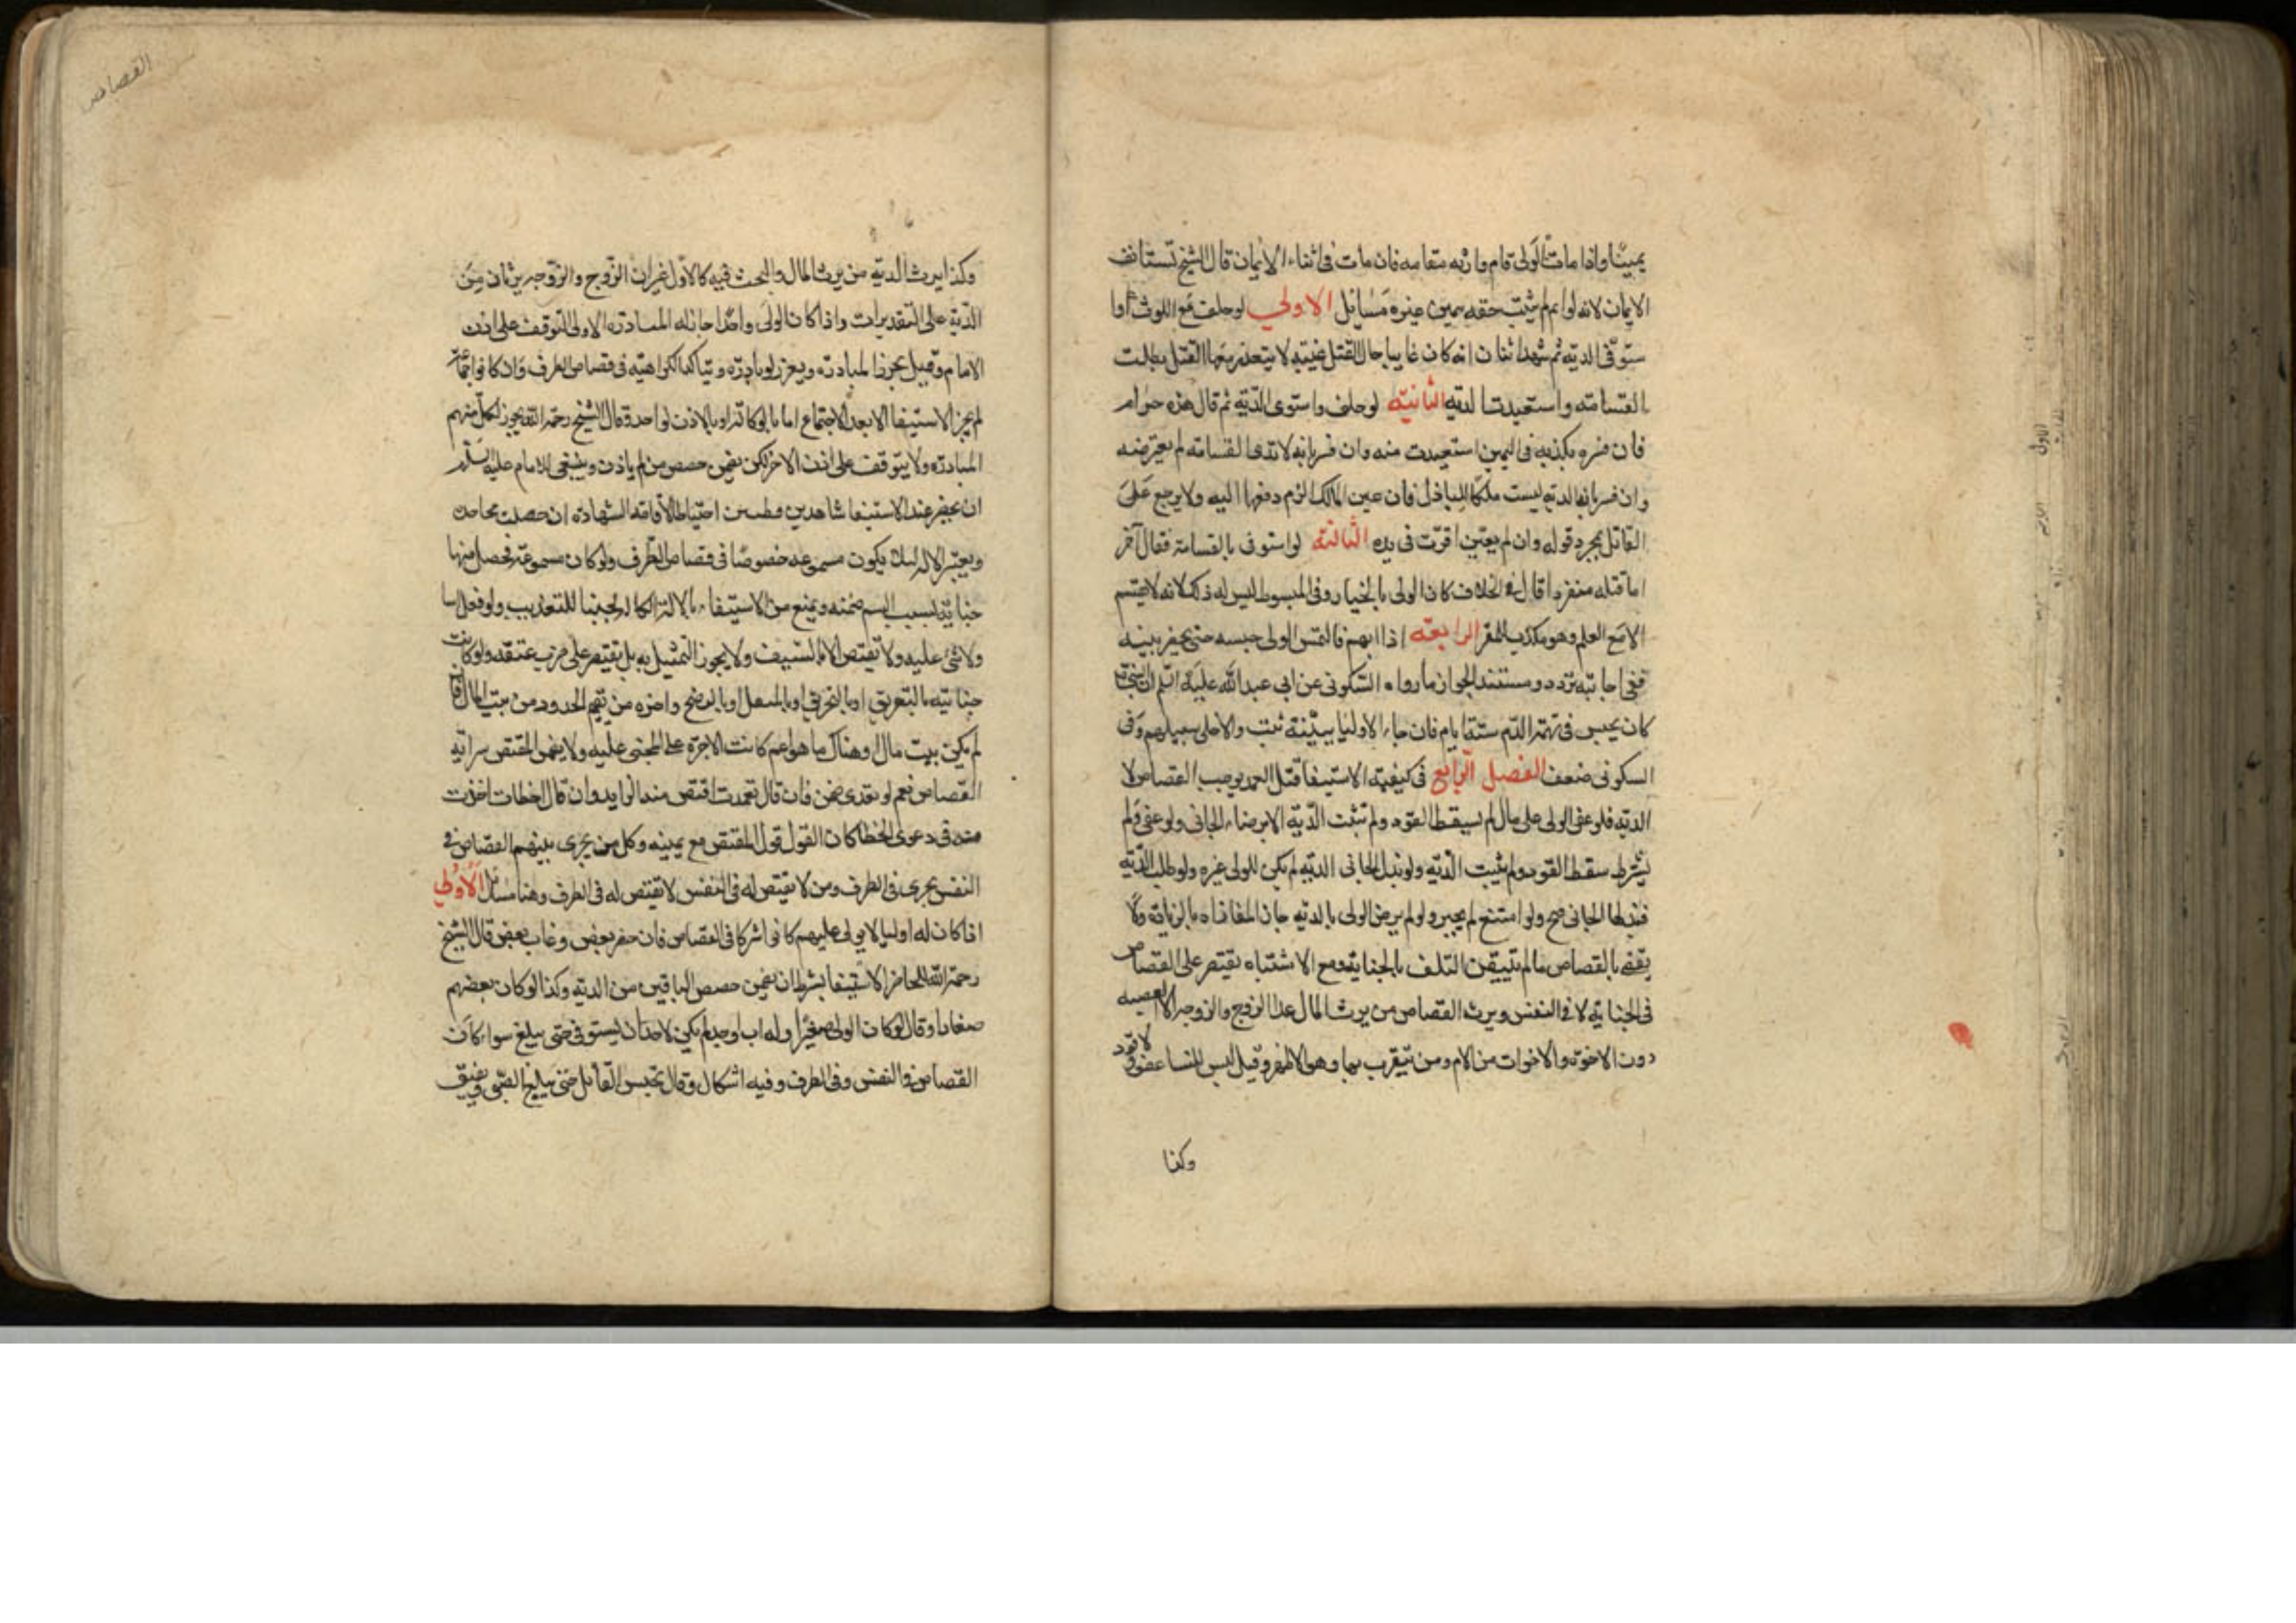 يمينا واذا مات الولى قام وارثه مقامه فان مات فى اثناء الايمان قال الشيخ تستانف
الايمان لانه لو اتم لم يثبت حقه بيمين غيره مسائل الاولى لو حلف مع اللوث و ا
ستوفى الديه ثم شهد اثنان انه كان غايبا حال القتل غيبه لا يتعذر معها القتل بطلت
القسامة واستعيدت الديه الثانية لو حلف واستوى الدّية ثم قال هذه حرام
فان فسره بكذبه فى اليمين استعيدت منه وان فسر بانه لا يرى القسامه لم يعترضه
وان فسر بانها الديه ليست ملكا للباذل فان عين المالك الزم دفعها اليه ولا يرجع على
القاتل بمجرد قوله وان لم يعين اقرت فى يده الثالثة لو استوفى بالقسامة فقال آخر
انا قتلته منفردا قال فى الخلاف كان الولى بالخيار وفى المبسوط ليس له ذلك لانه لا يقسم
الا مع العلم وهو مكذب للمقر الرابعة اذا اتهم فالتمس الولى حبسه حتى يحضر بينه
ففى اجابته تردد ومستند الجواز ما رواه السّكونى عن ابى عبد الله عليه السلم ان النبى ص
كان يحبس فى تهمة الدّم ستة ايام فان جاء الاوليا ببيّنة ثبت والا خلى سبيلهم وفى
السكونى ضعف الفصل الرّابع فى كيفية الاستيفا قتل العمد يوجب القصاص لا
الديه فلو عفى الولى على مال لم يسقط القود ولم تثبت الدّية الا برضاء الجانى ولو عفى ولم
يشرط سقط القود ولم يثبت الدّيه ولو بذل الجانى الديه لم يكن للولى غيره ولو طلب الدّية
فبذلها الجانى صح ولو امتنع لم يجبر ولو لم يرض الولى بالديه جاز المفاداه بالزيادة ولا
يقضى بالقصاص ما لم يتيقن التلف بالجناية ومع الاشتباه يقتصر على القصاص
فى الجناية لا فى النفس ويرث القصاص من يرث المال عدا الزوج والزوجه الا العصبه
دون الاخوة والاخوات من الام ومن يتقرب بها وهو الاظهر وقيل ليس للنسا عفو ولا قود
وكذا
القصاص
وكذا يرث الديه من يرث المال والبحث فيه كالاوّل غير ان الزّوج والزّوجه يرثان من
الدّية على التقديرات واذا كان الولى واحدا جاز له المبادره الاولى التوقف على اذن
الامام وقيل يحرم المبادره ويعزر لو بادره ويتاكد الكراهيّه فى قصاص الطرف وان كانوا جماعة
لم يجز الاستيفا الا بعد الاجتماع اما بالوكاله او بالاذن لواحد وقال الشيخ رحمه الله يجوز لكل منهم
المبادره ولا يتوقف على اذن الاخر لكن يضمن حصص من لم ياذن وينبغى للامام عليه السلم
ان يحضر عند الاستيفا شاهدين فطنين احتياطا لاقامة الشهاده ان حصلت مجاحده
ويعتبر الاله لئلا يكون مسمومه خصوصا فى قصاص الطّرف ولو كان مسمومة فحصل منها
جناية بسبب السم ضمنه ويمنع من الاستيفاء بالالة الكالة تجنبا للتعذيب ولو فعل اسا
ولا شئ عليه ولا يقتص الا بالسّيف ولا يجوز التمثيل به بل يقتصر على ضرب عنقه ولو كانت
جنايته بالتغريق او بالتحريق او بالمثقل او بالرضخ واجره من يقيم الحدود من بيت المال فان
لم يكن بيت مال او هناك ما هو اهم كانت الاجرة على المجنى عليه ولا يضمن المقتص سراية
القصاص نعم لو تعدى ضمن فان قال تعمدت اقتص منه الزايد وان قال اخطات اخذت
منه دعوى الخطا كان القول قول المقتص مع يمينه وكل من يجرى بينهم القصاص فى
النفس يجرى فى الطرف ومن لا يقتص له فى النفس لا يقتص له فى الطرف وهنا مسائل الاولى
اذا كان له اوليا لا يولى عليهم كانوا شركا فى القصاص فان حضر بعض وغاب بعض قال الشيخ
رحمه الله للحاضر الاستيفا بشرط ان يضمن حصص الباقين من الديه وكذا لو كان بعضهم
صغارا وقال لو كان الولى صغيرا وله اب او جد لم يكن لاحد ان يستوفى حتى يبلغ سواء كان
القصاص فى النفس وفى الطرف وفيه اشكال وقال يحبس القاتل حتى يبلغ الصّبى ويفيق